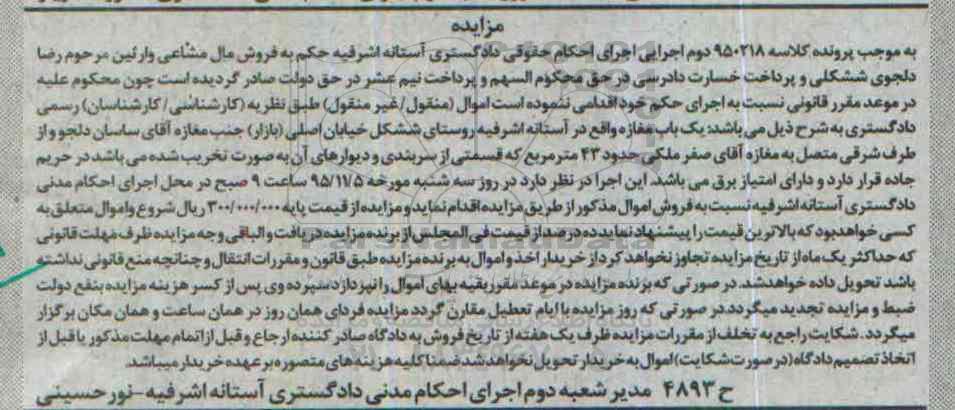 مزایده
به موجب پرونده کلاسه ۹۵۰۲۱۸ دوم اجرایی اجرای احکام حقوقی دادگستری آستانه اشرفیه حکم به فروش مال مشاعی وارثین مرحوم رضا
دلجوی ششکلی و پرداخت خسارت دادرسی در حق محکوم السهم و پرداخت نیم عشر در حق دولت صادر گردیده است چون محکوم علیه
در موعد مقرر قانونی نسبت به اجرای حکم خود اقدامی ننموده است اموال (منقول/غیر منقول) طبق نظریه (کارشناسی/کارشناسان) رسمی
دادگستری به شرح ذیل می باشد: یک باب مغازه واقع در آستانه اشرفیه روستای ششکل خیابان اصلی (بازار) جنب مغازه آقای ساسان دلجو و از
طرف شرقی متصل به مغازه آقای صفر ملکی حدود ۴۳ مترمربع که قسمتی از سربندی و دیوارهای آن به صورت تخریب شده می باشد در حریم
جاده قرار دارد و دارای امتیاز برق می باشد. این اجرا در نظر دارد در روز سه شنبه مورخه ۹۵/۱۱/۵ ساعت ۹ صبح در محل اجرای احکام مدنی
دادگستری آستانه اشرفیه نسبت به فروش اموال مذکور از طریق مزایده اقدام نماید و مزایده از قیمت پایه ۳۰۰/۰۰۰/۰۰۰ ریال شروع و اموال متعلق به
کسی خواهد بود که بالاترین قیمت را پیشنهاد نماید ده درصد از قیمت فی المجلس از برنده مزایده دریافت و الباقی وجه مزایده ظرف مهلت قانونی
که حداکثر یک ماه از تاریخ مزایده تجاوز نخواهد کرد از خریدار اخذ و اموال به برنده مزایده طبق قانون و مقررات انتقال و چنانچه منع قانونی نداشته
باشد تحویل داده خواهد شد. در صورتی که برنده مزایده در موعد مقرر بقیه بهای اموال را نپردازد سپرده وی پس از کسر هزینه مزایده بنفع دولت
ضبط و مزایده تجدید میگردد. در صورتی که روز مزایده با ایام تعطیل مقارن گردد مزایده فردای همان روز در همان ساعت و همان مکان برگزار
میگردد. شکایت راجع به تخلف از مقررات مزایده ظرف یک هفته از تاریخ فروش به دادگاه صادر کننده ارجاع و قبل از اتمام مهلت مذکور یا قبل از
اتخاذ تصمیم دادگاه (در صورت شکایت) اموال به خریدار تحویل نخواهد شد ضمنا کلیه هزینه های متصوره بر عهده خریدار میباشد.
ح ۴۸۹۳ مدیر شعبه دوم اجرای احکام مدنی دادگستری آستانه اشرفیه - نورحسینی